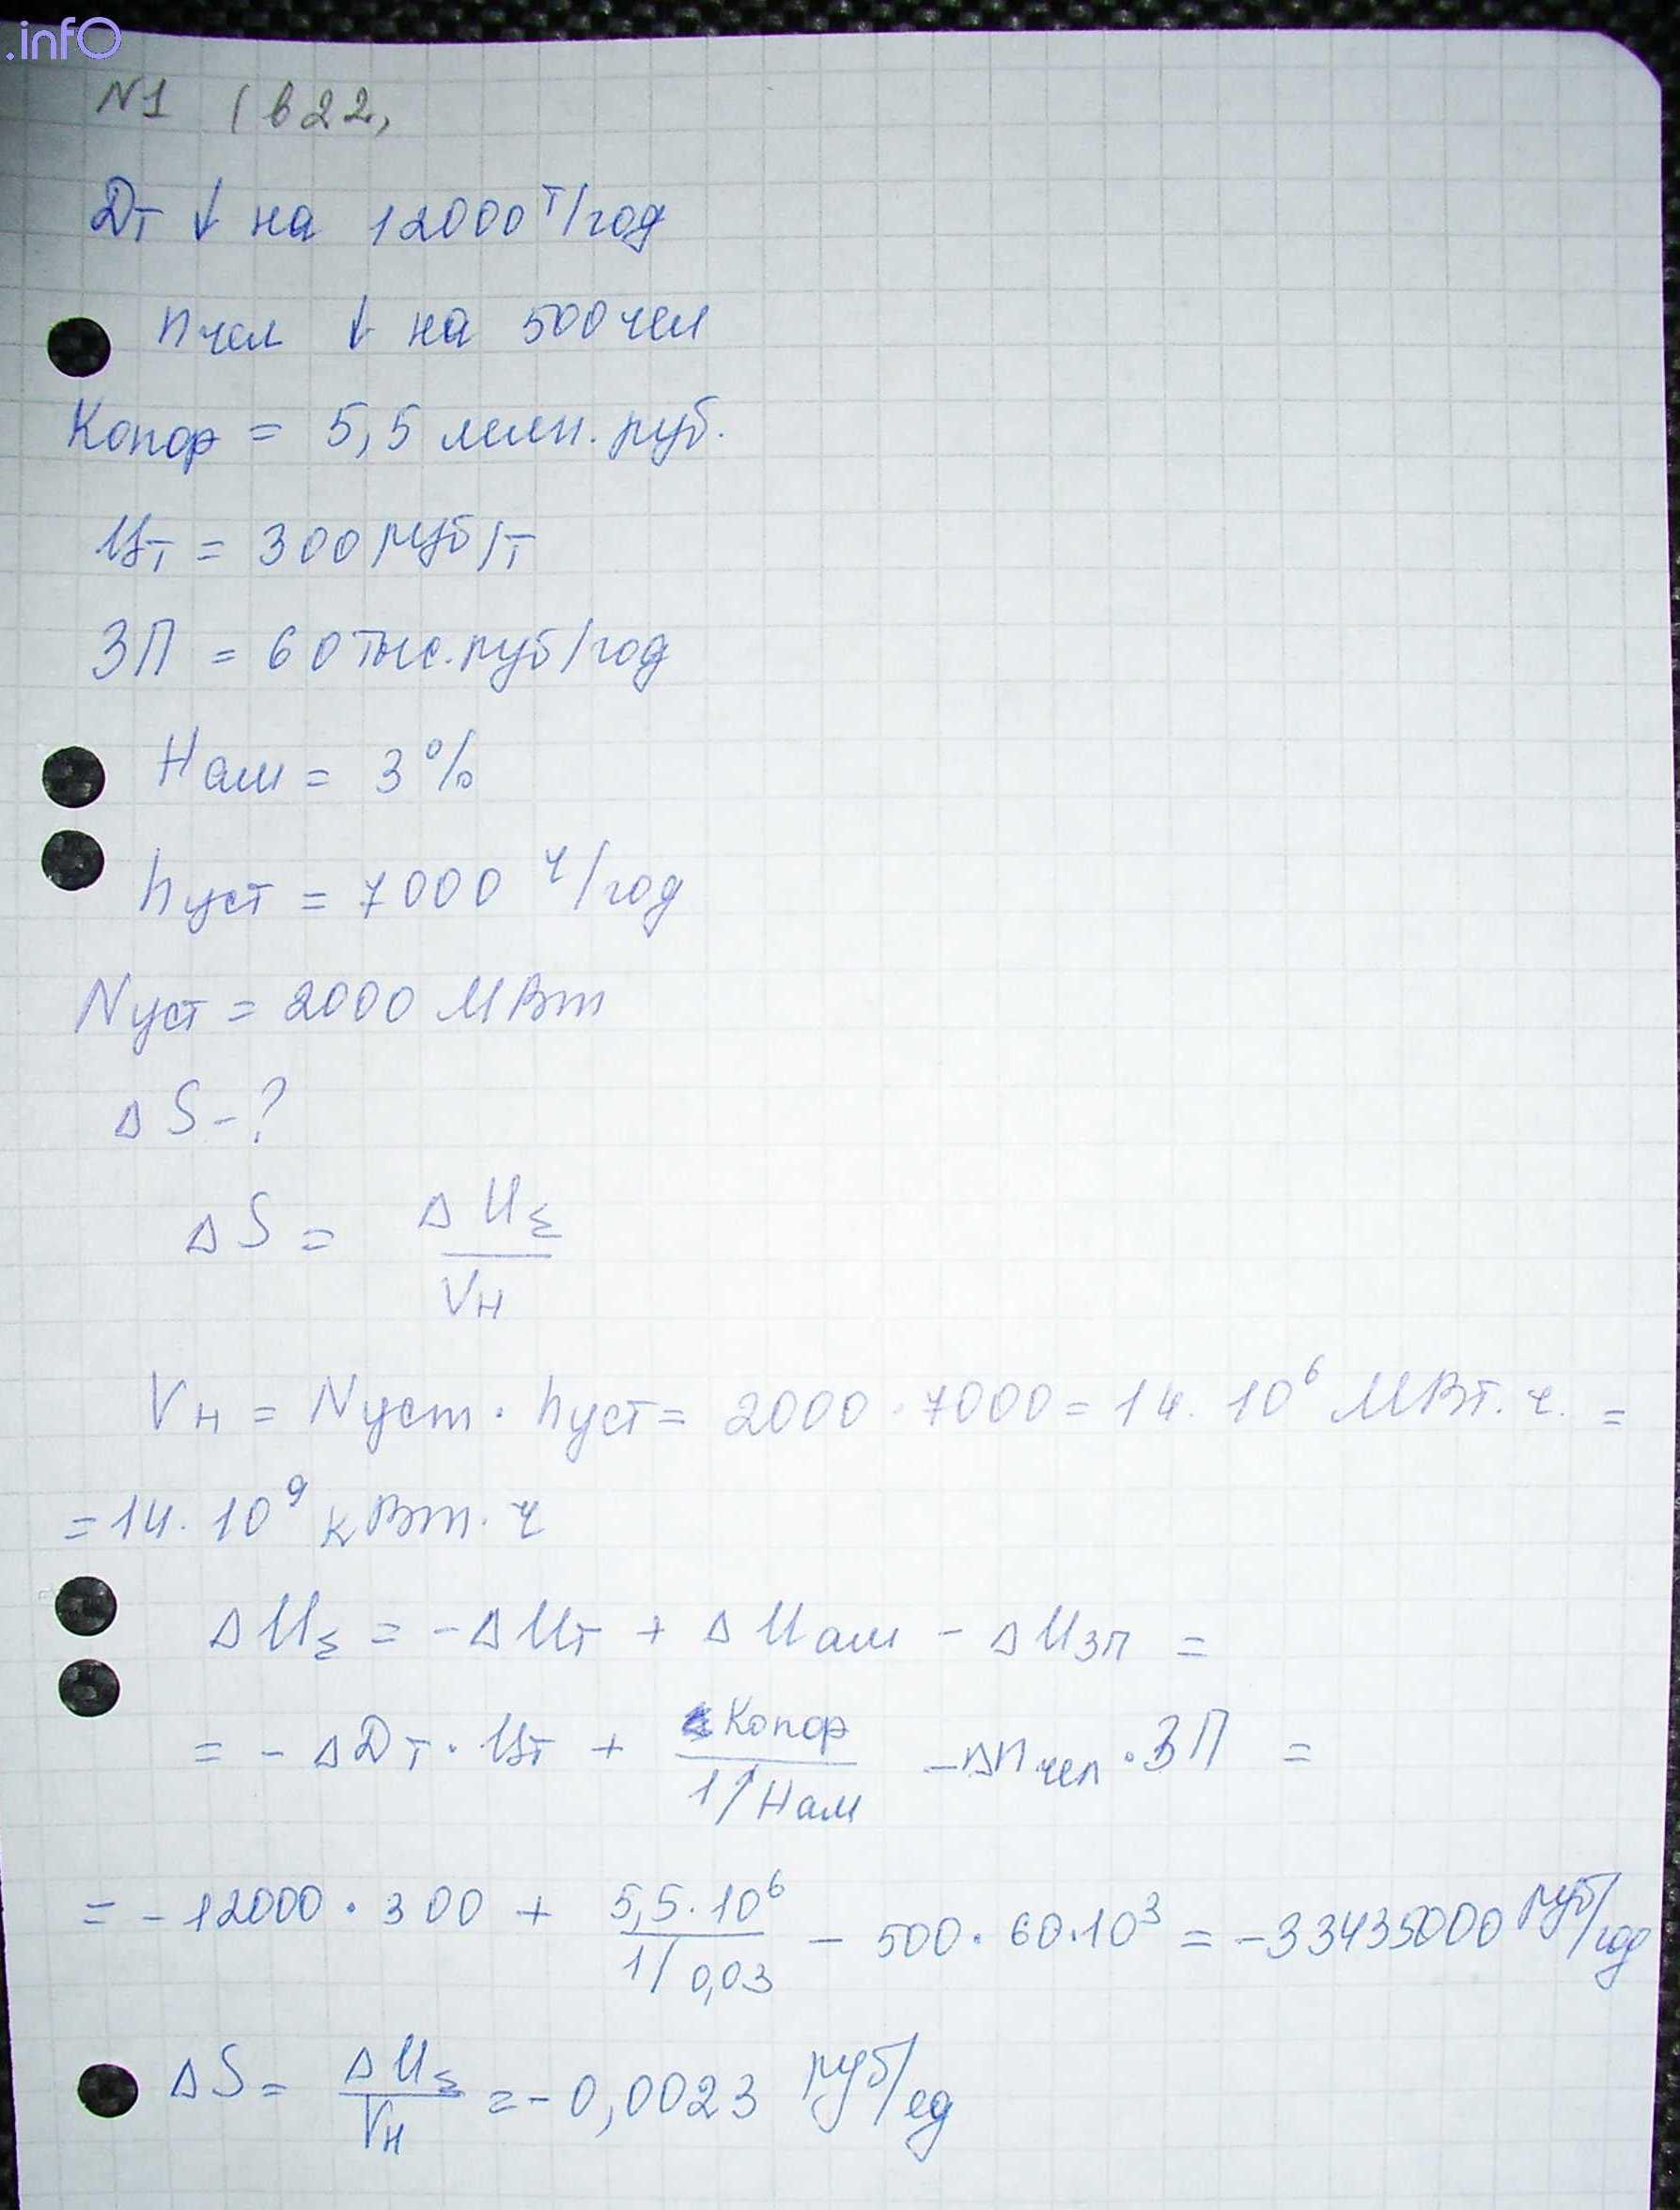 .info
N1 (в22,
Dт ↓ на 12000 т/год
nчел ↓ на 500 чел
Kопор = 5,5 млн. руб.
Цт = 300 руб/т
ЗП = 60 тыс. руб/год
Hам = 3 %
hуст = 7000 ч/год
Nуст = 2000 МВт
ΔS - ?
ΔS = ΔИΣ / Vн
Vн = Nуст · hуст = 2000 · 7000 = 14 · 10⁶ МВт. ч. =
= 14 · 10⁹ кВт. ч
ΔИΣ = - ΔИт + ΔИам - ΔИзп =
= - ΔDт · Цт + Kопор / 1/Hам - Δnчел · ЗП =
= - 12000 · 300 + 5,5 · 10⁶ / 1/0,03 - 500 · 60 · 10³ = -33435000 руб/год
ΔS = ΔИΣ / Vн = - 0,0023 руб/ед